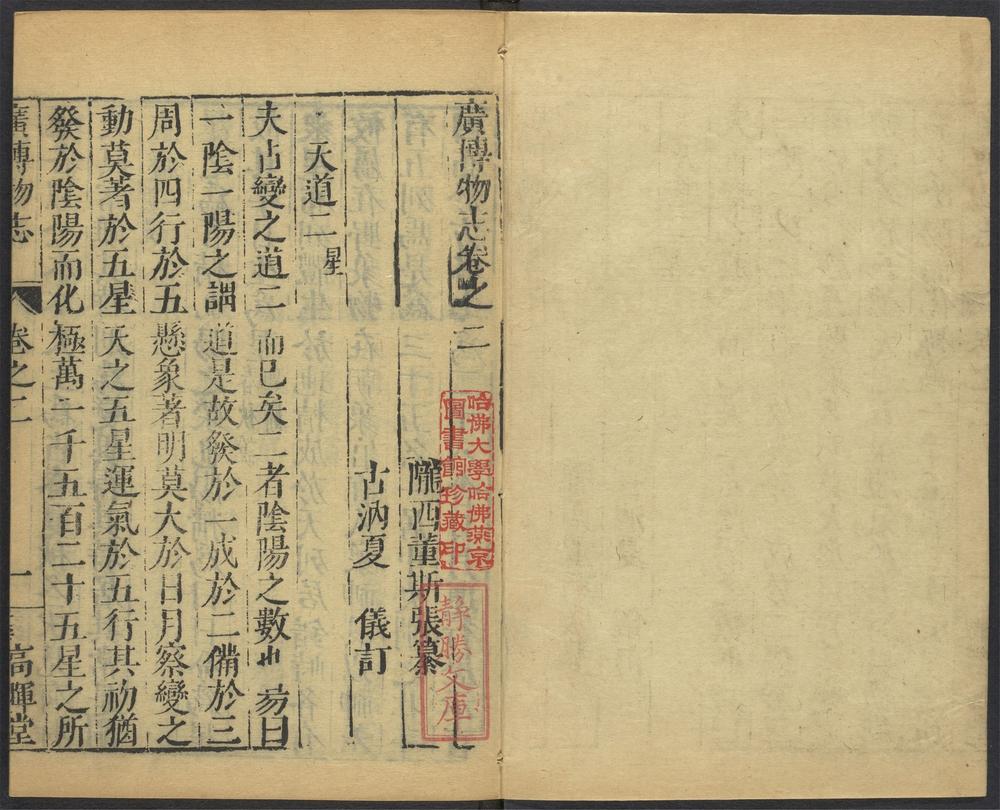 廣博物志卷之二
隴西董斯張纂
古汭夏　儀訂
天道二星
夫占變之道二而已矣二者陰陽之數也易曰
一陰一陽之謂道是故發於一成於二備於三
周於四行於五懸象著明莫大於日月察變之
動莫著於五星天之五星運氣於五行其初猶
發於陰陽而化極萬一千五百二十五星之所
廣博物志
卷之二
一
高暉堂
哈佛大學哈佛燕京
圖書館珍藏印
靜勝文庫